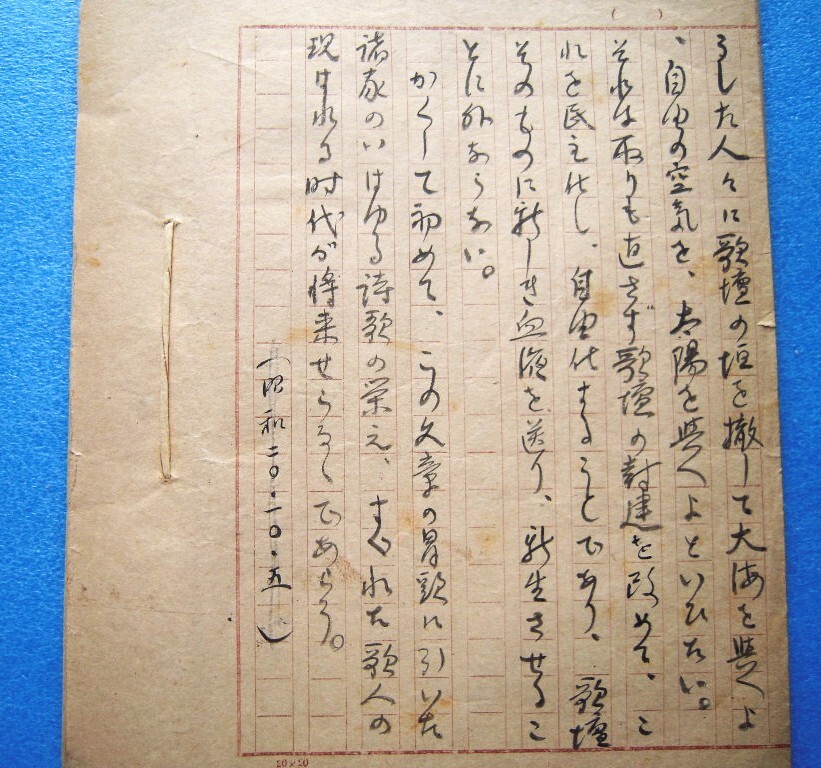 るした人々に歌壇の垣を撤して大海を與へよ
、自由の空気を、太陽を與へよといひたい。
それは取りも直さず歌壇の封建を改めて、こ
れを民主化し、自由化することであり、歌壇
そのものに新しき血液を送り、新生させるこ
とに外ならない。
かくして初めて、この文章の冒頭に引いた
諸家のいはゆる詩歌の栄え、すぐれた歌人の
現はれる時代が将来せらるゝであらう。
（昭和二〇・一〇・五）
20×20